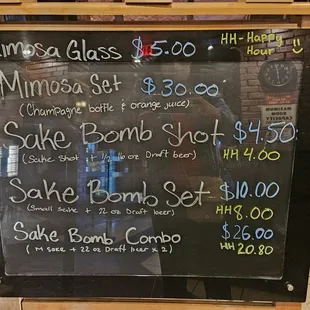 Mimosa Glass $5.00
HH-Happy Hour
Mimosa Set $30.00
(Champagne bottle & orange juice)
Sake Bomb Shot $4.50
(Sake shot + 1/2 16 oz Draft beer) HH 4.00
Sake Bomb Set $10.00
(Small sake + 22 oz Draft beer) HH 8.00
Sake Bomb Combo $26.00
(M sake + 22 oz Draft beer x 2) HH 20.80